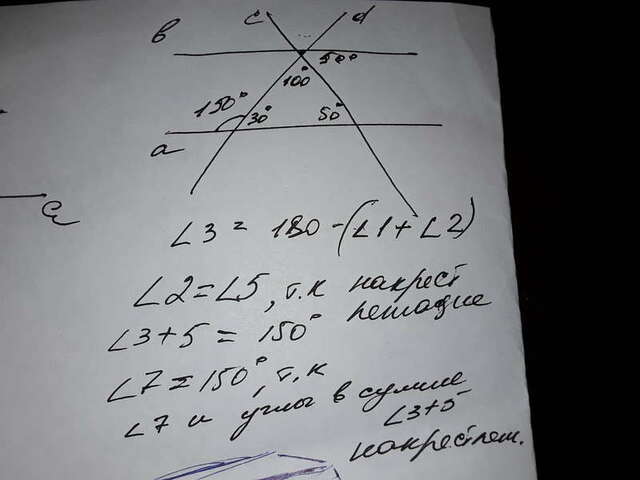 c d
в
500
100°
150° 30° 50°
a
a
∠3 = 180 - (∠1 + ∠2)
∠2 = ∠5, т.к накрест
лежащие
∠3+5 = 150°
∠7 = 150°, т.к
∠7 и углы в сумме
∠3+5
накрестлеж.